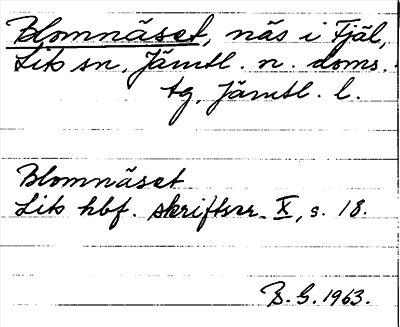 Blomnäset, näs i Fjäl,
Lits sn, Jämtl. n. doms.
tg, Jämtl. l.
Blomnäset
Lits hbf. skriftser. X, s. 18.
B. G. 1963.